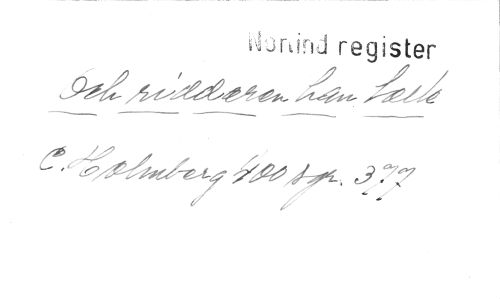 Norlind register
Och riddaren han talte
C. Holmberg 400 sgr. 377